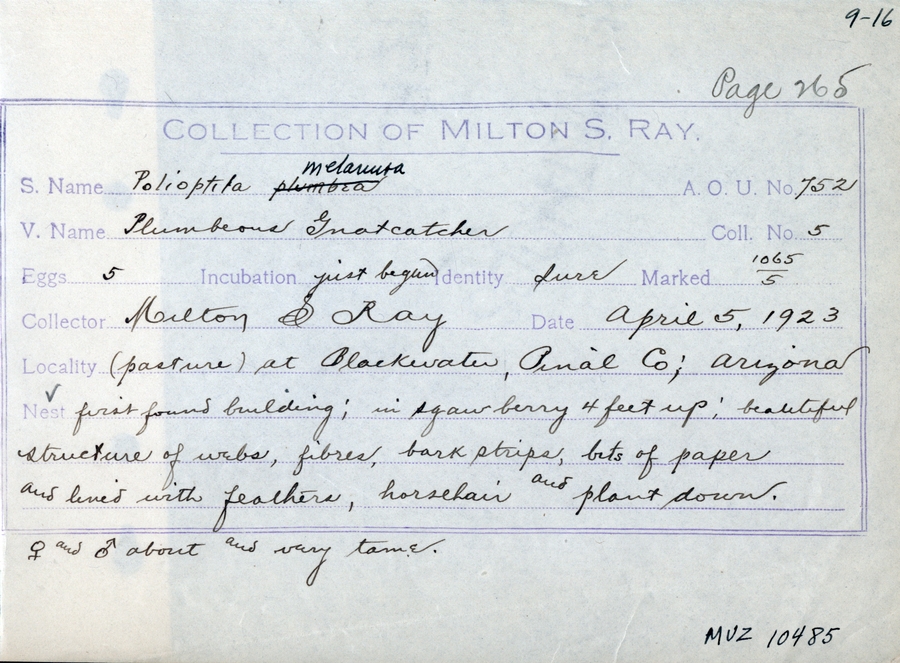 9-16
Page 265
COLLECTION OF MILTON S. RAY.
melanura
S. Name Polioptila plumbea A. O. U. No. 752
V. Name Plumbeous Gnatcatcher Coll. No. 5
Eggs 5 Incubation just begun Identity sure Marked 1065/5
Collector Milton S Ray Date April 5, 1923
Locality (pasture) at Blackwater, Pinal Co; Arizona
Nest ✓ first found building; in sqawberry 4 feet up; beautiful
structure of webs, fibres, bark strips, bits of paper
and lined with feathers, horsehair and plant down.
♀ and ♂ about and very tame.
MVZ 10485